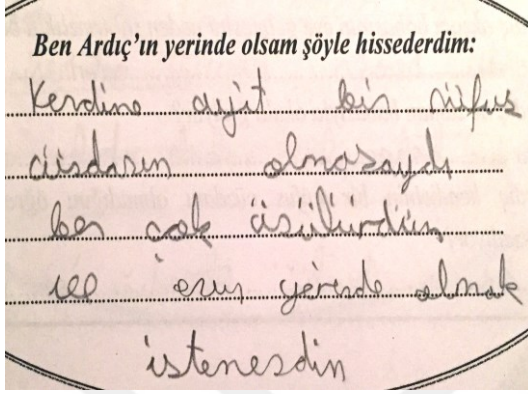 Ben Ardıç'ın yerinde olsam şöyle hissederdim:
Kendine ayit bir nüfus
cüsdanın olmasaydı
ben çok üsülürdüm
ve onun yerinde olmak
istemesdim